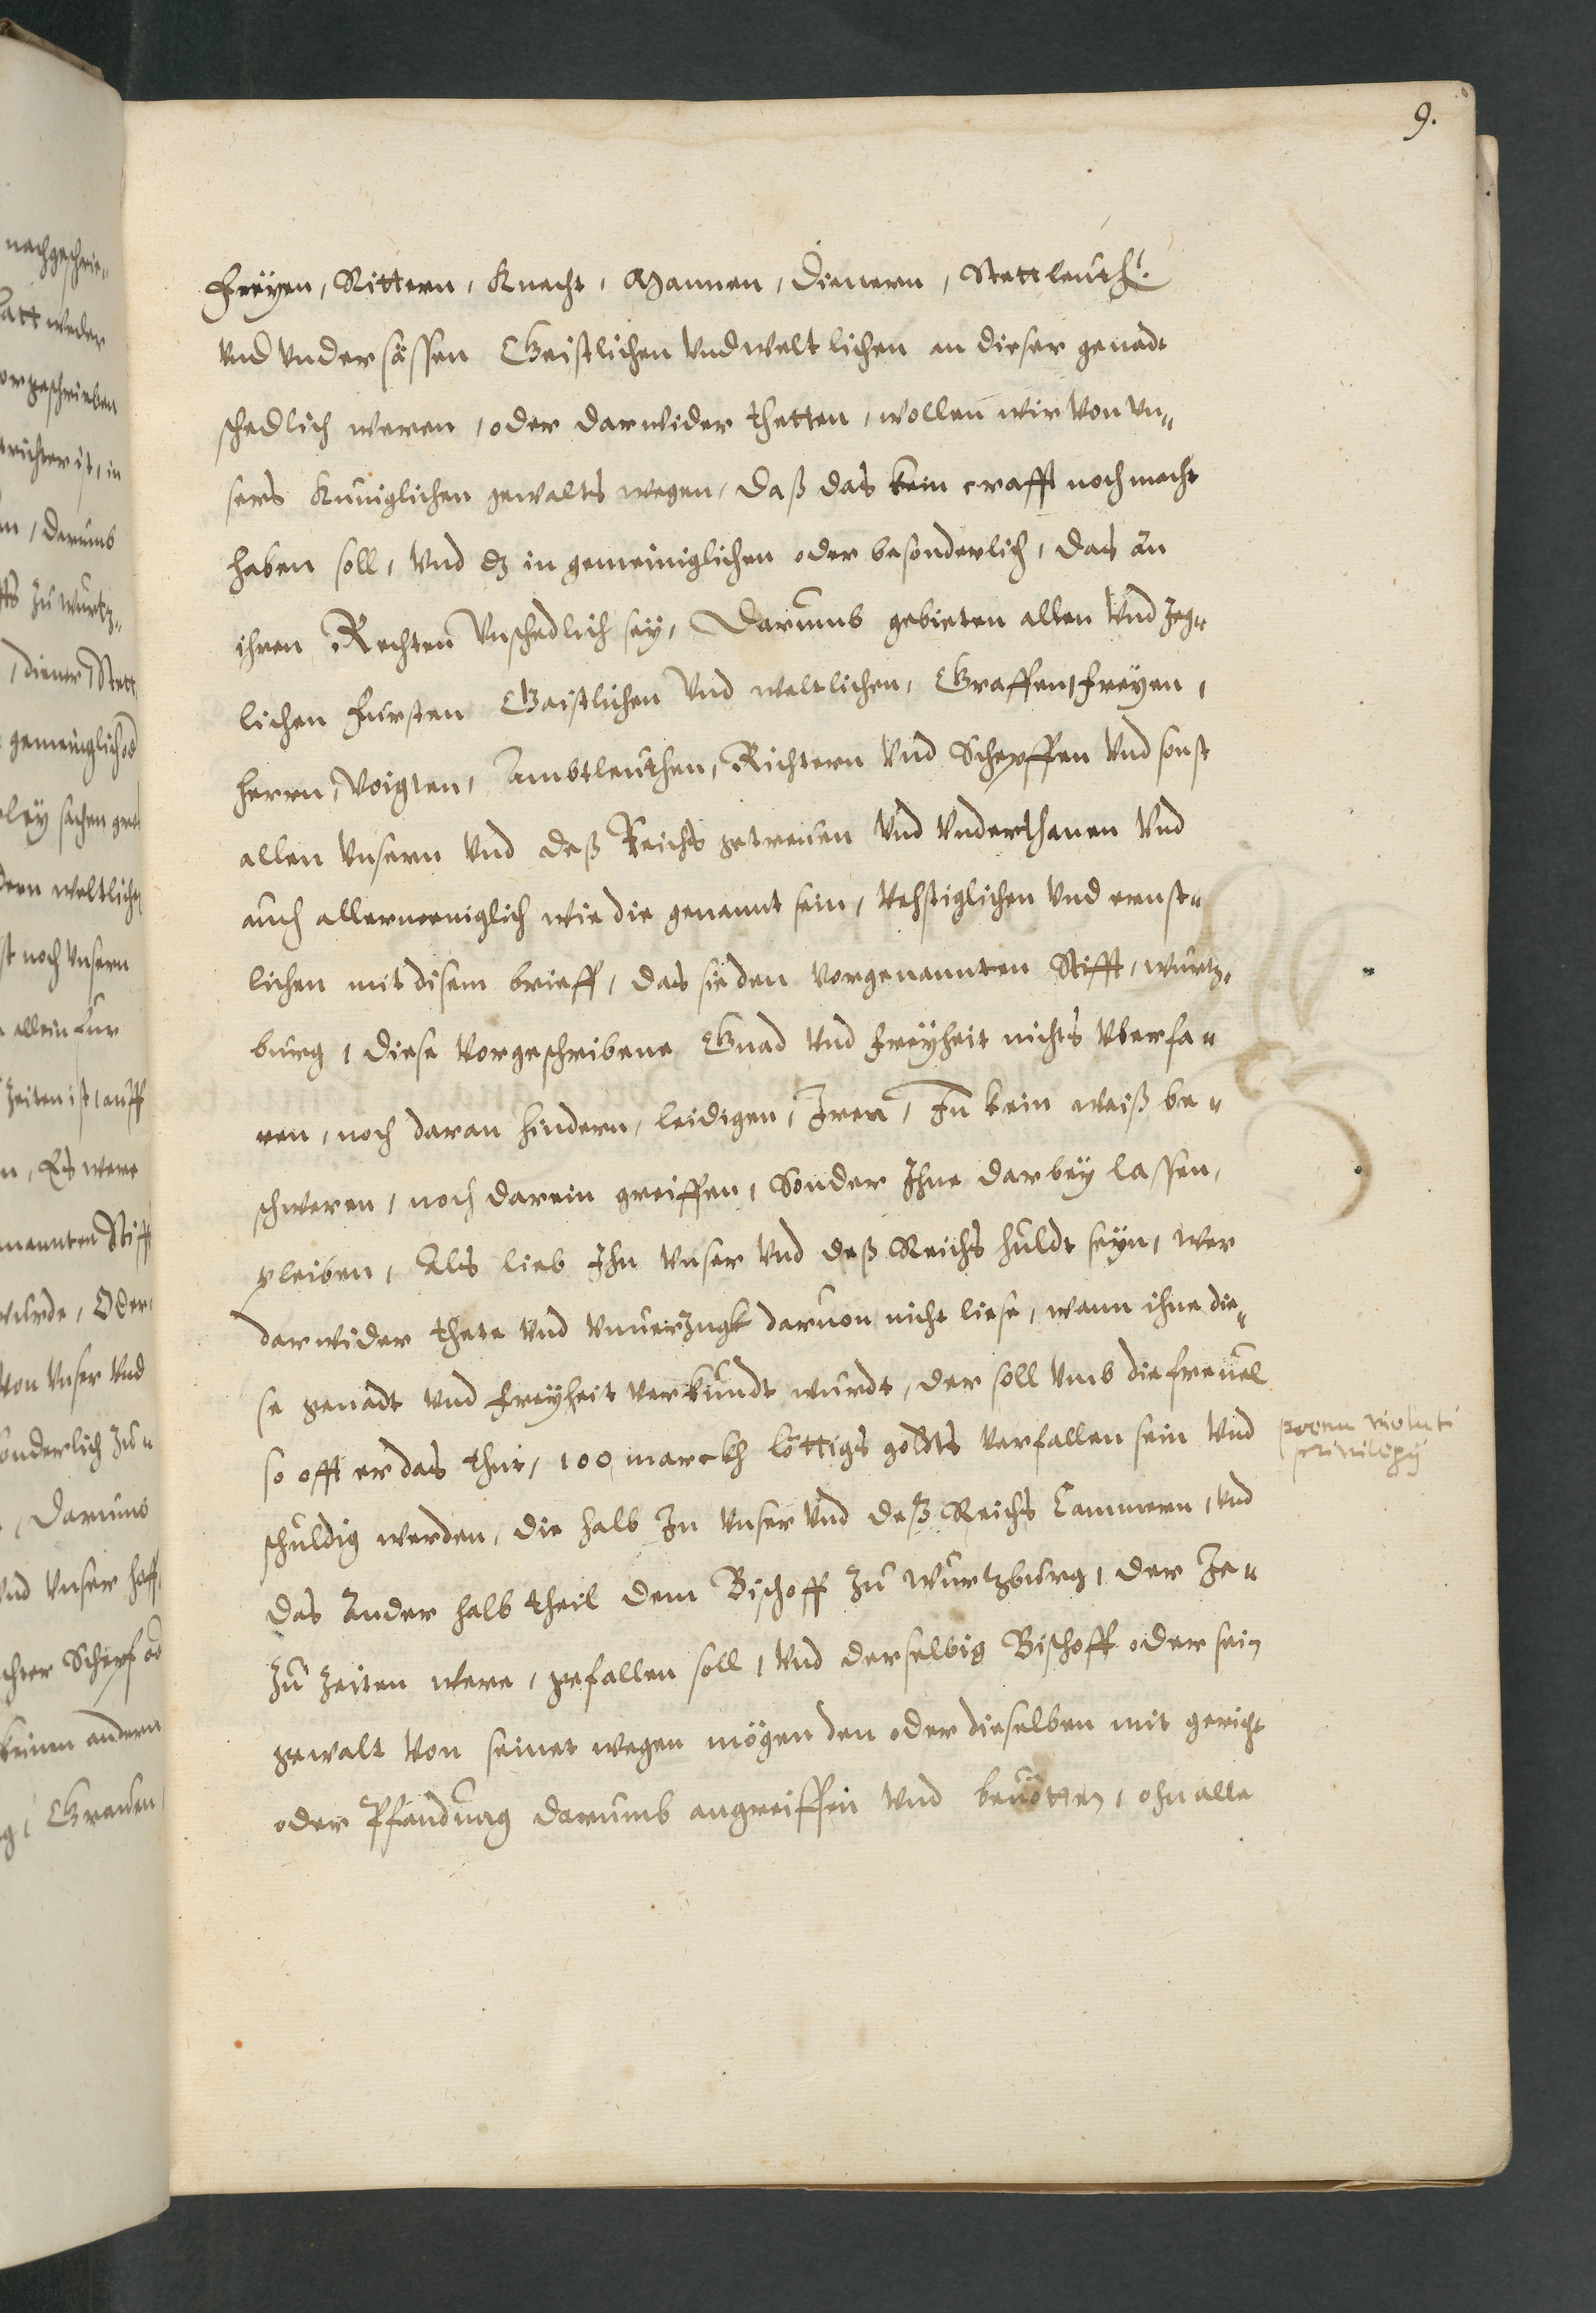 9.
Freÿen, Rittern, Knecht, Mannen, Dienern, Stettleuth.
vnd vndersässen Geistlichen vnd weltlichen an dieser genadt
schedlich weren, oder darwider thetten, wollen wir von vn„
sers Kuniglichen gewalts wegen, daß das kein crafft noch macht
haben soll, vnd dz in gemeiniglichen oder besonderlich, das an
ihren Rechten vnschedlich seÿ, Darumb gebieten allen vnd Jeg„
lichen Fursten Gaistlichen vnd weltlichen, Graffen, Freÿen,
Herrn, Voigten, Ambtleuthen, Richtern vnd Schepffen vnd sonst
allen vnsern vnd deß Reichs getreuen vnd vnderthanen vnd
auch allermeniglich wie die genannt sein, Vehstiglichen vnd ernst„
lichen mit disem brieff, das sie den vorgenannten Stifft, wurtz„
burg, diese vorgeschribene Gnad vnd freÿheit nichts vberfa„
ren, noch daran hindern, leidigen, Irren, In kein weiß be„
schweren, noch darein greiffen, Sonder Ihne darbeÿ lassen,
pleiben, Als lieb Ihn vnser vnd deß Reichs huldt seÿn, wer
darwider thete vnd vnuerzugk daruon nicht liese, wann ihne die„
se genadt vnd freÿheit verkündt wurdt, der soll vmb die freuel
so offt er das thut, 100 marckh löttigs goldts verfallen sein vnd
schuldig werden, die halb In vnser vnd deß Reichs Cammern, vnd
das Ander halb theil dem Bischoff zu wurtzburg, der Je„
zu Zeiten were, gefallen soll, vnd derselbig Bischoff oder sein
gewalt von seinet wegen mögen den oder dieselben mit gericht
oder Pfandung darumb angreiffen vnd benötten, ohn alle
poena violati
privilegÿ